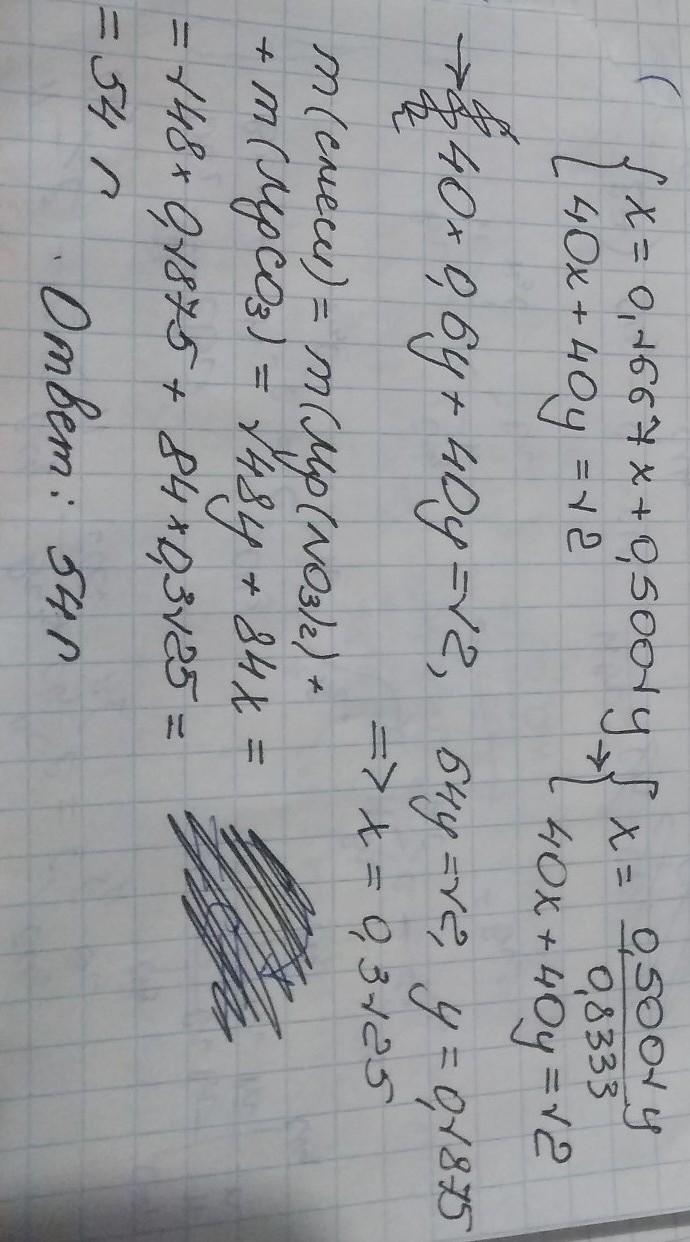 { x = 0,1667x + 0,5001y { x = 0,5001y / 0,8333
{ 40x + 40y = 12 → { 40x + 40y = 12
→ 40 × 0,6y + 40y = 12, 64y = 12, y = 0,1875
=> x = 0,3125
m(смеси) = m(Mg(NO3)2) +
+ m(MgCO3) = 148y + 84x =
= 148 × 0,1875 + 84 × 0,3125 =
= 54 г
Ответ: 54 г